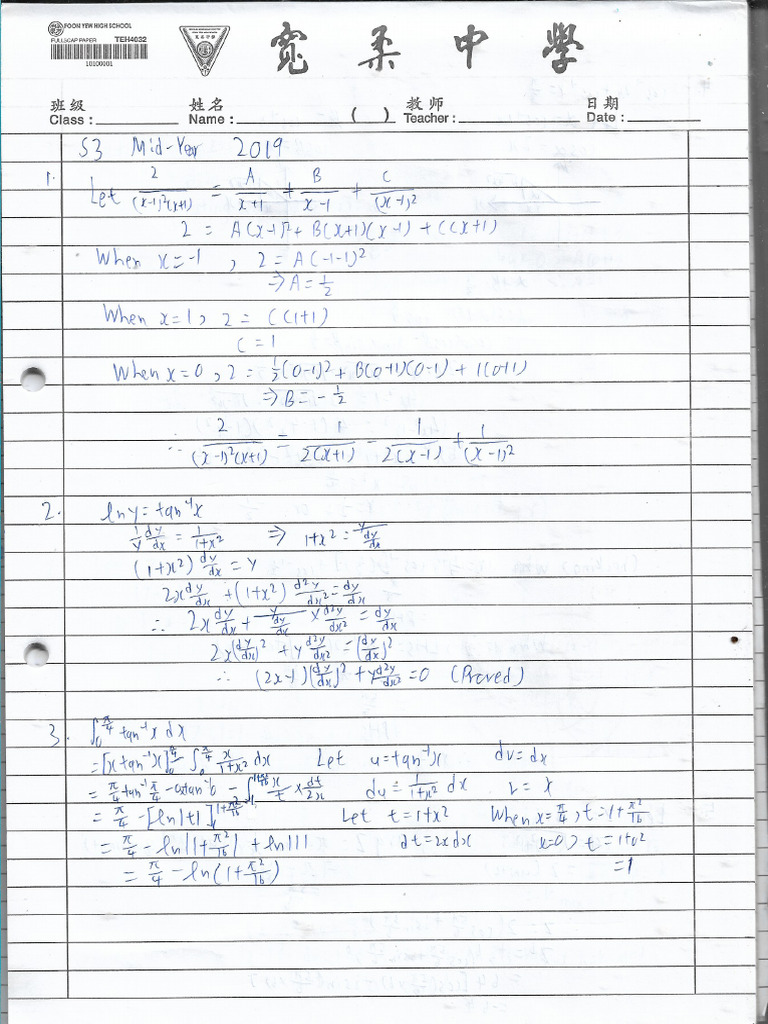 FOON YEW HIGH SCHOOL
FULLSCAP PAPER TEH4032
10100001
寬柔中學
班级 姓名 教师 日期
Class : Name : ( ) Teacher : Date :
S3 Mid-Year 2019
1. Let 2/((x-1)²(x+1)) = A/(x+1) + B/(x-1) + C/(x-1)²
2 = A(x-1)² + B(x+1)(x-1) + C(x+1)
When x=-1, 2 = A(-1-1)²
⇒ A = 1/2
When x=1, 2 = C(1+1)
C = 1
When x=0, 2 = 1/2(0-1)² + B(0+1)(0-1) + 1(0+1)
⇒ B = -1/2
∴ 2/((x-1)²(x+1)) = 1/(2(x+1)) - 1/(2(x-1)) + 1/(x-1)²
2. ln y = tan⁻¹x
1/y dy/dx = 1/(1+x²) ⇒ 1+x² = y/(dy/dx)
(1+x²) dy/dx = y
2x dy/dx + (1+x²) d²y/dx² = dy/dx
∴ 2x dy/dx + y/(dy/dx) × d²y/dx² = dy/dx
2x(dy/dx)² + y d²y/dx² = (dy/dx)²
∴ (2x-1)(dy/dx)² + y d²y/dx² = 0 (Proved)
3. ∫₀^(π/4) tan⁻¹x dx
= [x tan⁻¹x]₀^(π/4) - ∫₀^(π/4) x/(1+x²) dx Let u = tan⁻¹x dv = dx
= π/4 tan⁻¹ π/4 - 0tan⁻¹0 - ∫₁^(1+π²/16) x/t × dt/2x du = 1/(1+x²) dx v = x
= π/4 - [ln|t|]₁^(1+π²/16) Let t = 1+x² When x = π/4, t = 1+π²/16
= π/4 - ln|1+π²/16| + ln|1| dt = 2x dx x=0, t = 1+0²
= π/4 - ln(1+π²/16) =1